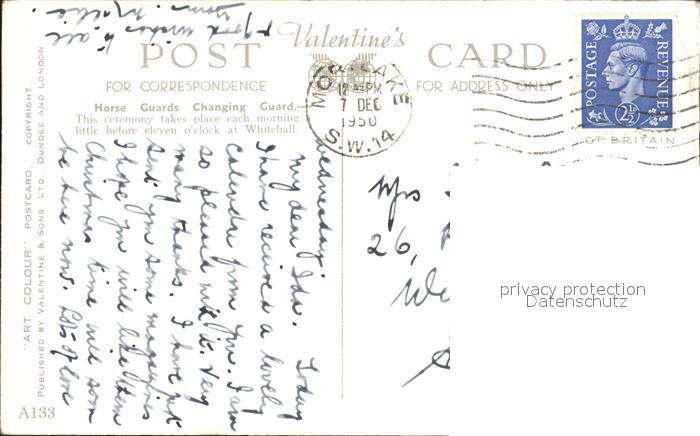 + good wishes to all
from
POST Valentine's CARD
FOR CORRESPONDENCE
FOR ADDRESS ONLY
Horse Guards Changing Guard.—
This ceremony takes place each morning
little before eleven o'clock at Whitehall.
MORTLAKE
12 PM
7 DEC
1950
S.W.14
POSTAGE
REVENUE
2½D
GT BRITAIN
"ART COLOUR" POSTCARD. COPYRIGHT.
PUBLISHED BY VALENTINE & SONS, LTD., DUNDEE AND LONDON
Wednesday.
My dear Ida. Today
I have received a lovely
calendar from you. I am
so pleased with it. Very
many thanks. I have just
sent you some magazines
I hope you will like them
Christmas time will soon
be here now. Lots of love
Mrs
26,
We
privacy protection
Datenschutz
A133